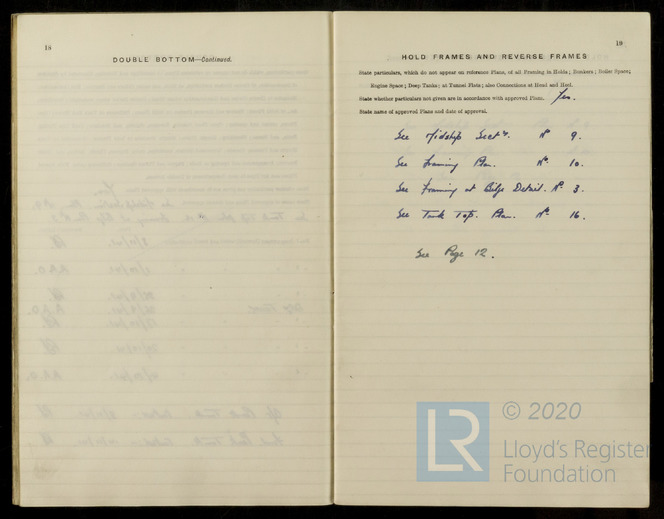 18
DOUBLE BOTTOM—Continued.
19
HOLD FRAMES AND REVERSE FRAMES
State particulars, which do not appear on reference Plans, of all Framing in Holds; Bunkers; Boiler Space;
Engine Space; Deep Tanks; at Tunnel Flats; also Connections at Head and Heel.
State whether particulars not given are in accordance with approved Plans. Yes.
State name of approved Plans and date of approval.
See Midship Sectn. No 9.
See Framing Plan. No. 10.
See Framing at Bilge Detail. No. 3.
See Tank Top. Plan. No 16.
See Page 12.
LR © 2020
Lloyd's Register
Foundation